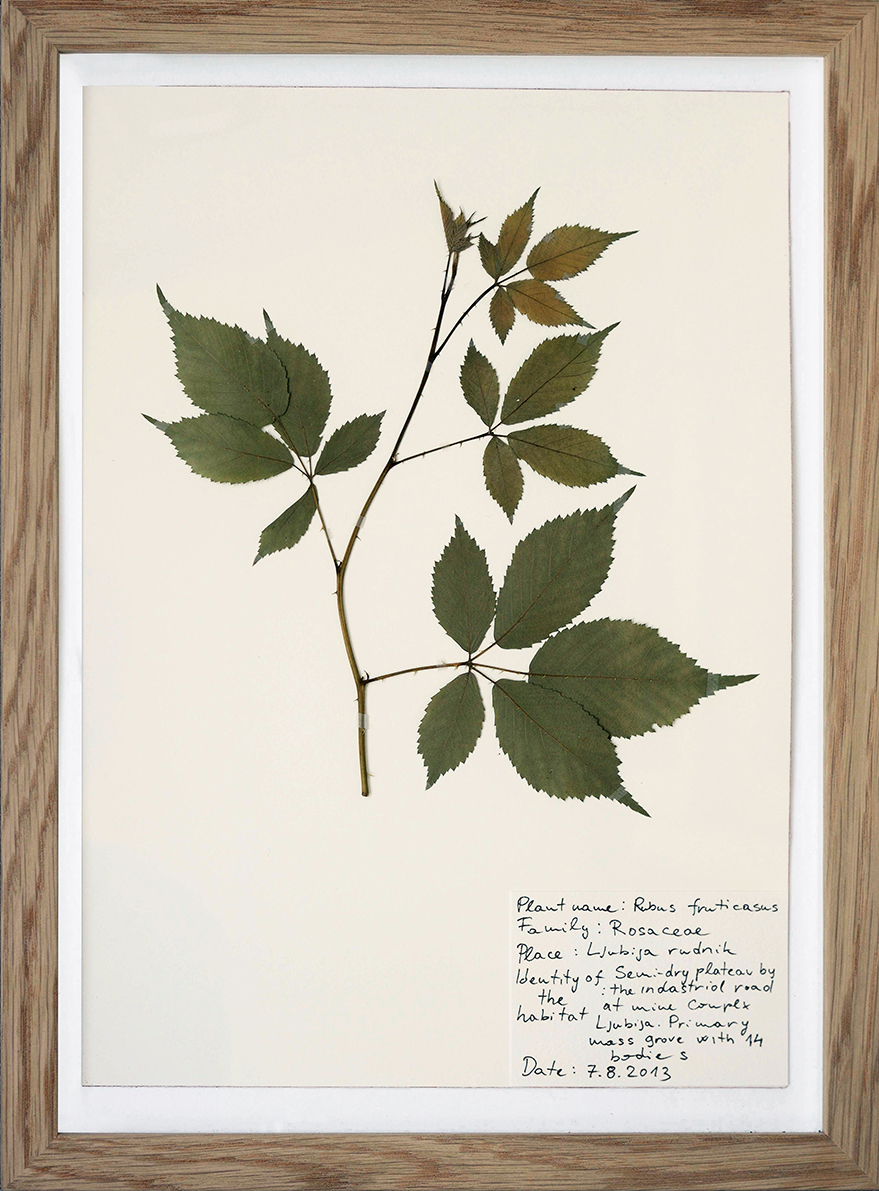 Plant name: Rubus fruticasus
Family: Rosaceae
Place: Ljubija rudnik
Identity of Semi-dry plateau by
the : the indastriol road
habitat at mine complex
Ljubija. Primary
mass grove with 14
bodies
Date: 7.8.2013